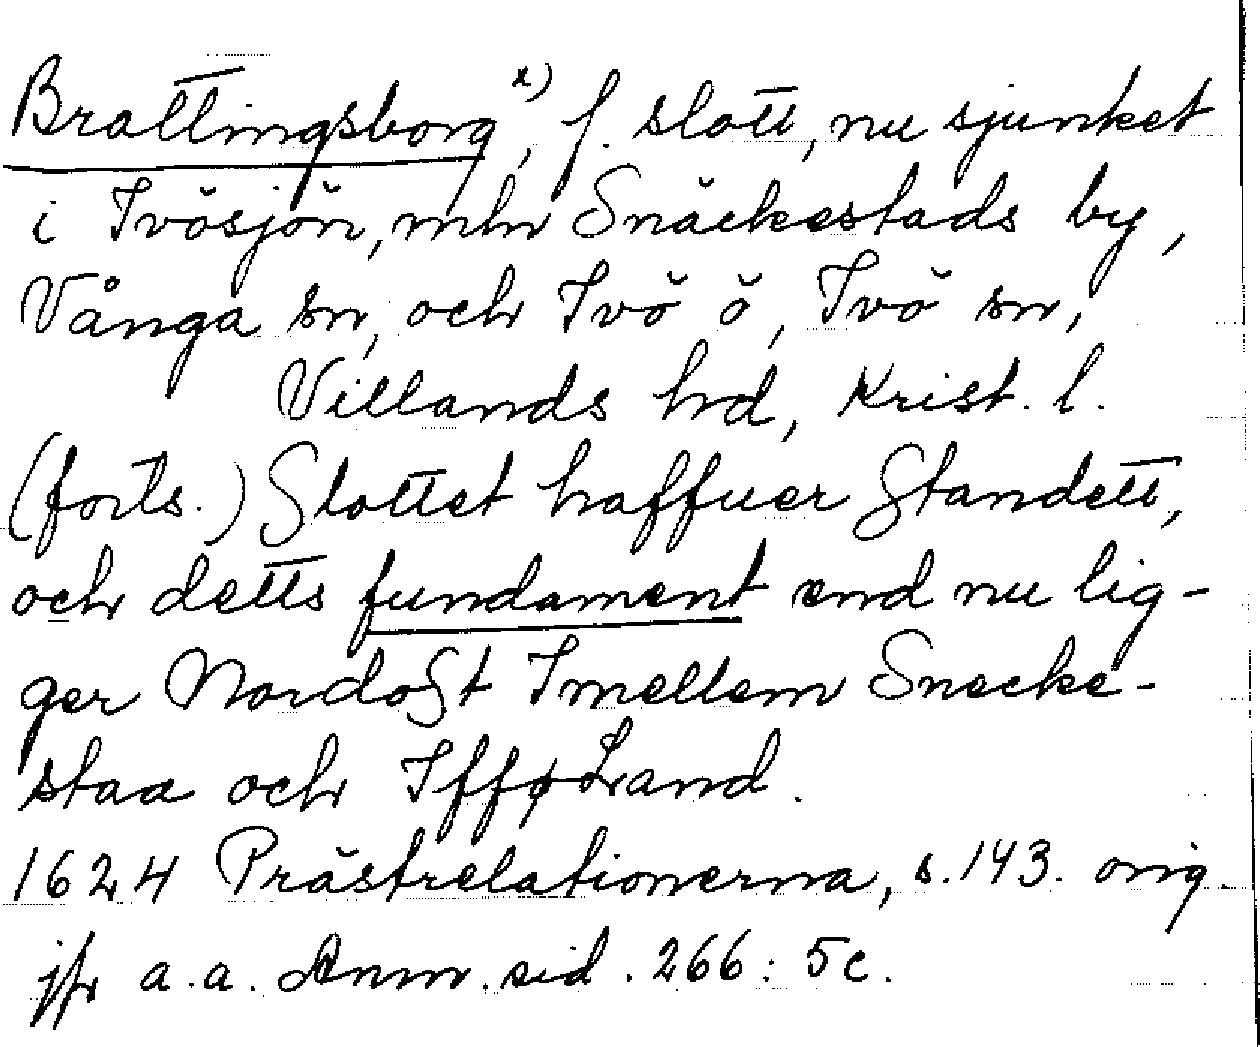 Brattingsborg x), f. slott, nu sjunket
i Ivösjön, mln Snäckestads by,
Vånga sn, och Ivö ö, Ivö sn,
Villands hd, Krist. l.
(forts.) Slottet haffuer Standett,
och detts fundament end nu lig-
ger Nordost Imellem Snecke-
staa och Iffø Land.
1624 Prästrelationerna, s. 143. orig.
jfr a.a. Anm. sid. 266: 5c.